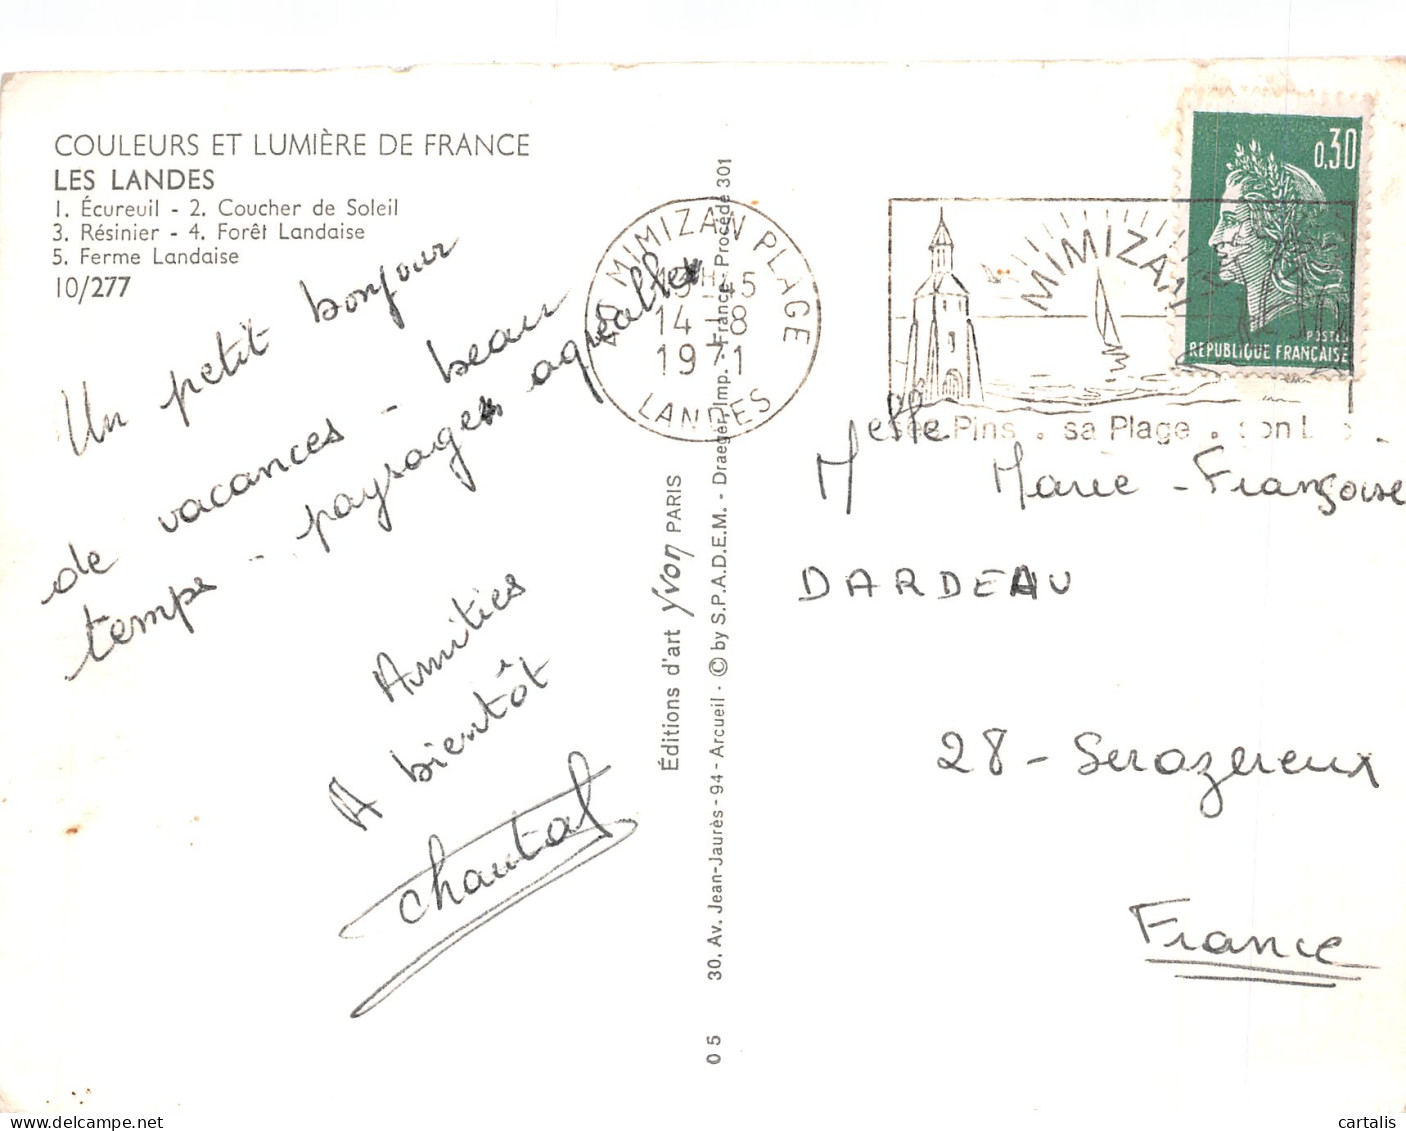 COULEURS ET LUMIÈRE DE FRANCE
LES LANDES
1. Écureuil - 2. Coucher de Soleil
3. Résinier - 4. Forêt Landaise
5. Ferme Landaise
10/277
Un petit bonjour
de vacances - beau
temps - paysages agréables
Amitiés
A bientôt
Chantal
Éditions d'art Yvon PARIS
30, Av. Jean-Jaurès - 94 - Arcueil - © by S.P.A.D.E.M. - Draeger, Imp. - France - Procédé 301
05
40 MIMIZAN PLAGE
45
14-8
1971
LANDES
MIMIZAN
ses Pins . sa Plage . son
0,30
POSTES
REPUBLIQUE FRANÇAISE
Melle Marie-Françoise
DARDEAU
28 - Serazereux
France
cartalis
delcampe.net